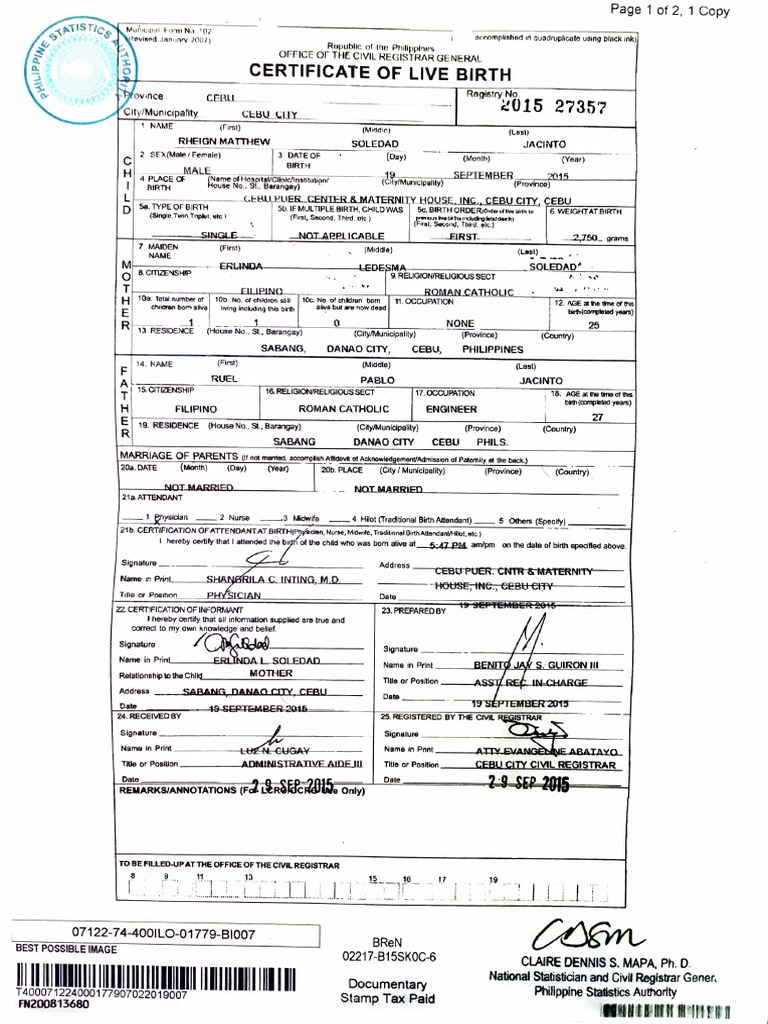 Page 1 of 2, 1 Copy
PHILIPPINE STATISTICS AUTHORITY
Municipal Form No. 102
(Revised January 2007)
accomplished in quadruplicate using black ink)
Republic of the Philippines
OFFICE OF THE CIVIL REGISTRAR GENERAL
CERTIFICATE OF LIVE BIRTH
Province CEBU
Registry No.
2015 27357
City/Municipality CEBU CITY
CHILD
1 NAME (First) (Middle) (Last)
RHEIGN MATTHEW SOLEDAD JACINTO
2 SEX(Male / Female) 3 DATE OF BIRTH (Day) (Month) (Year)
MALE 19 SEPTEMBER 2015
4 PLACE OF BIRTH (Name of Hospital/Clinic/Institution/ House No., St., Barangay) (City/Municipality) (Province)
CEBU PUER. CENTER & MATERNITY HOUSE, INC., CEBU CITY, CEBU
5a. TYPE OF BIRTH (Single, Twin, Triplet, etc.) 5b. IF MULTIPLE BIRTH, CHILD WAS (First, Second, Third, etc.) 5c. BIRTH ORDER (First, Second, Third, etc.) 6. WEIGHT AT BIRTH
SINGLE NOT APPLICABLE FIRST 2,750 grams
MOTHER
7 MAIDEN NAME (First) (Middle) (Last)
ERLINDA LEDESMA SOLEDAD
8. CITIZENSHIP 9. RELIGION/RELIGIOUS SECT
FILIPINO ROMAN CATHOLIC
10a. Total number of children born alive 10b. No. of children still living including this birth 10c. No. of children born alive but are now dead 11. OCCUPATION 12. AGE at the time of this birth(completed years)
1 1 0 NONE 25
13. RESIDENCE (House No., St., Barangay) (City/Municipality) (Province) (Country)
SABANG, DANAO CITY, CEBU, PHILIPPINES
FATHER
14. NAME (First) (Middle) (Last)
RUEL PABLO JACINTO
15. CITIZENSHIP 16. RELIGION/RELIGIOUS SECT 17. OCCUPATION 18. AGE at the time of this birth(completed years)
FILIPINO ROMAN CATHOLIC ENGINEER 27
19. RESIDENCE (House No., St., Barangay) (City/Municipality) (Province) (Country)
SABANG DANAO CITY CEBU PHILS.
MARRIAGE OF PARENTS (If not married, accomplish Affidavit of Acknowledgement/Admission of Paternity at the back.)
20a. DATE (Month) (Day) (Year) 20b. PLACE (City / Municipality) (Province) (Country)
NOT MARRIED NOT MARRIED
21a. ATTENDANT
X 1 Physician 2 Nurse 3 Midwife 4 Hilot (Traditional Birth Attendant) 5 Others (Specify)
21b. CERTIFICATION OF ATTENDANT AT BIRTH(Physician, Nurse, Midwife, Traditional Birth Attendant/Hilot, etc.)
I hereby certify that I attended the birth of the child who was born alive at 5:47 PM am/pm on the date of birth specified above.
Signature
Address CEBU PUER. CNTR & MATERNITY
Name in Print SHANGRILA C. INTING, M.D.
HOUSE, INC., CEBU CITY
Title or Position PHYSICIAN
Date 19 SEPTEMBER 2015
22. CERTIFICATION OF INFORMANT
I hereby certify that all information supplied are true and correct to my own knowledge and belief.
Signature
Name in Print ERLINDA L. SOLEDAD
Relationship to the Child MOTHER
Address SABANG, DANAO CITY, CEBU
Date 19 SEPTEMBER 2015
23. PREPARED BY
Signature
Name in Print BENITO JAY S. GUIRON III
Title or Position ASST. REC. IN-CHARGE
Date 19 SEPTEMBER 2015
24. RECEIVED BY
Signature
Name in Print LUZ N. CUGAY
Title or Position ADMINISTRATIVE AIDE III
Date 29 SEP 2015
25. REGISTERED BY THE CIVIL REGISTRAR
Signature
Name in Print ATTY. EVANGELINE ABATAYO
Title or Position CEBU CITY CIVIL REGISTRAR
Date 29 SEP 2015
REMARKS/ANNOTATIONS (For LCRO/OCRG Use Only)
TO BE FILLED-UP AT THE OFFICE OF THE CIVIL REGISTRAR
8 9 11 13 15 16 17 19
07122-74-400ILO-01779-BI007
BEST POSSIBLE IMAGE
T400071224000177907022019007
FN200813680
BReN
02217-B15SK0C-6
Documentary
Stamp Tax Paid
CLAIRE DENNIS S. MAPA, Ph. D.
National Statistician and Civil Registrar General
Philippine Statistics Authority